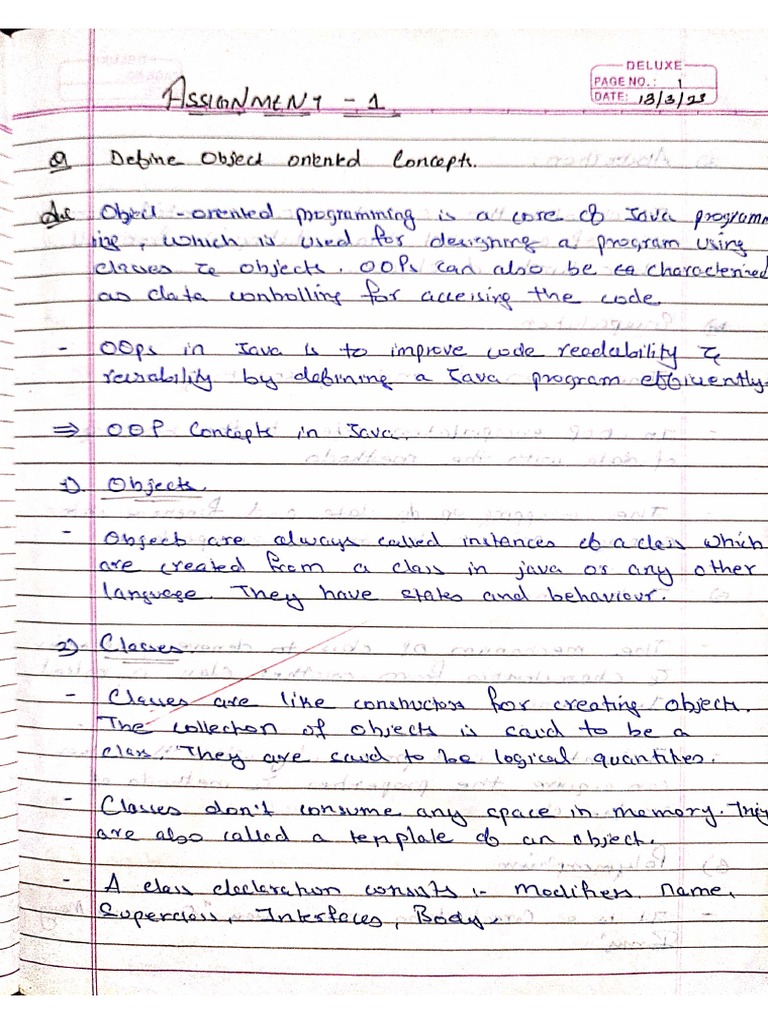 DELUXE
PAGE NO.: 1
DATE: 13/3/23
ASSIGNMENT - 1
Q Define Object oriented Concepts.
Ans Object - oriented programming is a core of Java programm
ing, which is used for designing a program using
classes & objects. OOPs can also be characterized
as data controlling for accessing the code.
- OOps in Java is to improve code readability &
reusability by defining a Java program efficiently.
⇒ OOP Concepts in Java.
1). Objects.
- Objects are always called instances of a class which
are created from a class in java or any other
language. They have states and behaviour.
2). Classes
- Classes are like constructors for creating objects.
The collection of objects is said to be a
class. They are said to be logical quantities.
- Classes don't consume any space in memory. They
are also called a template of an object.
- A class declaration consists :- Modifiers, Name,
Superclass, Interfaces, Body.